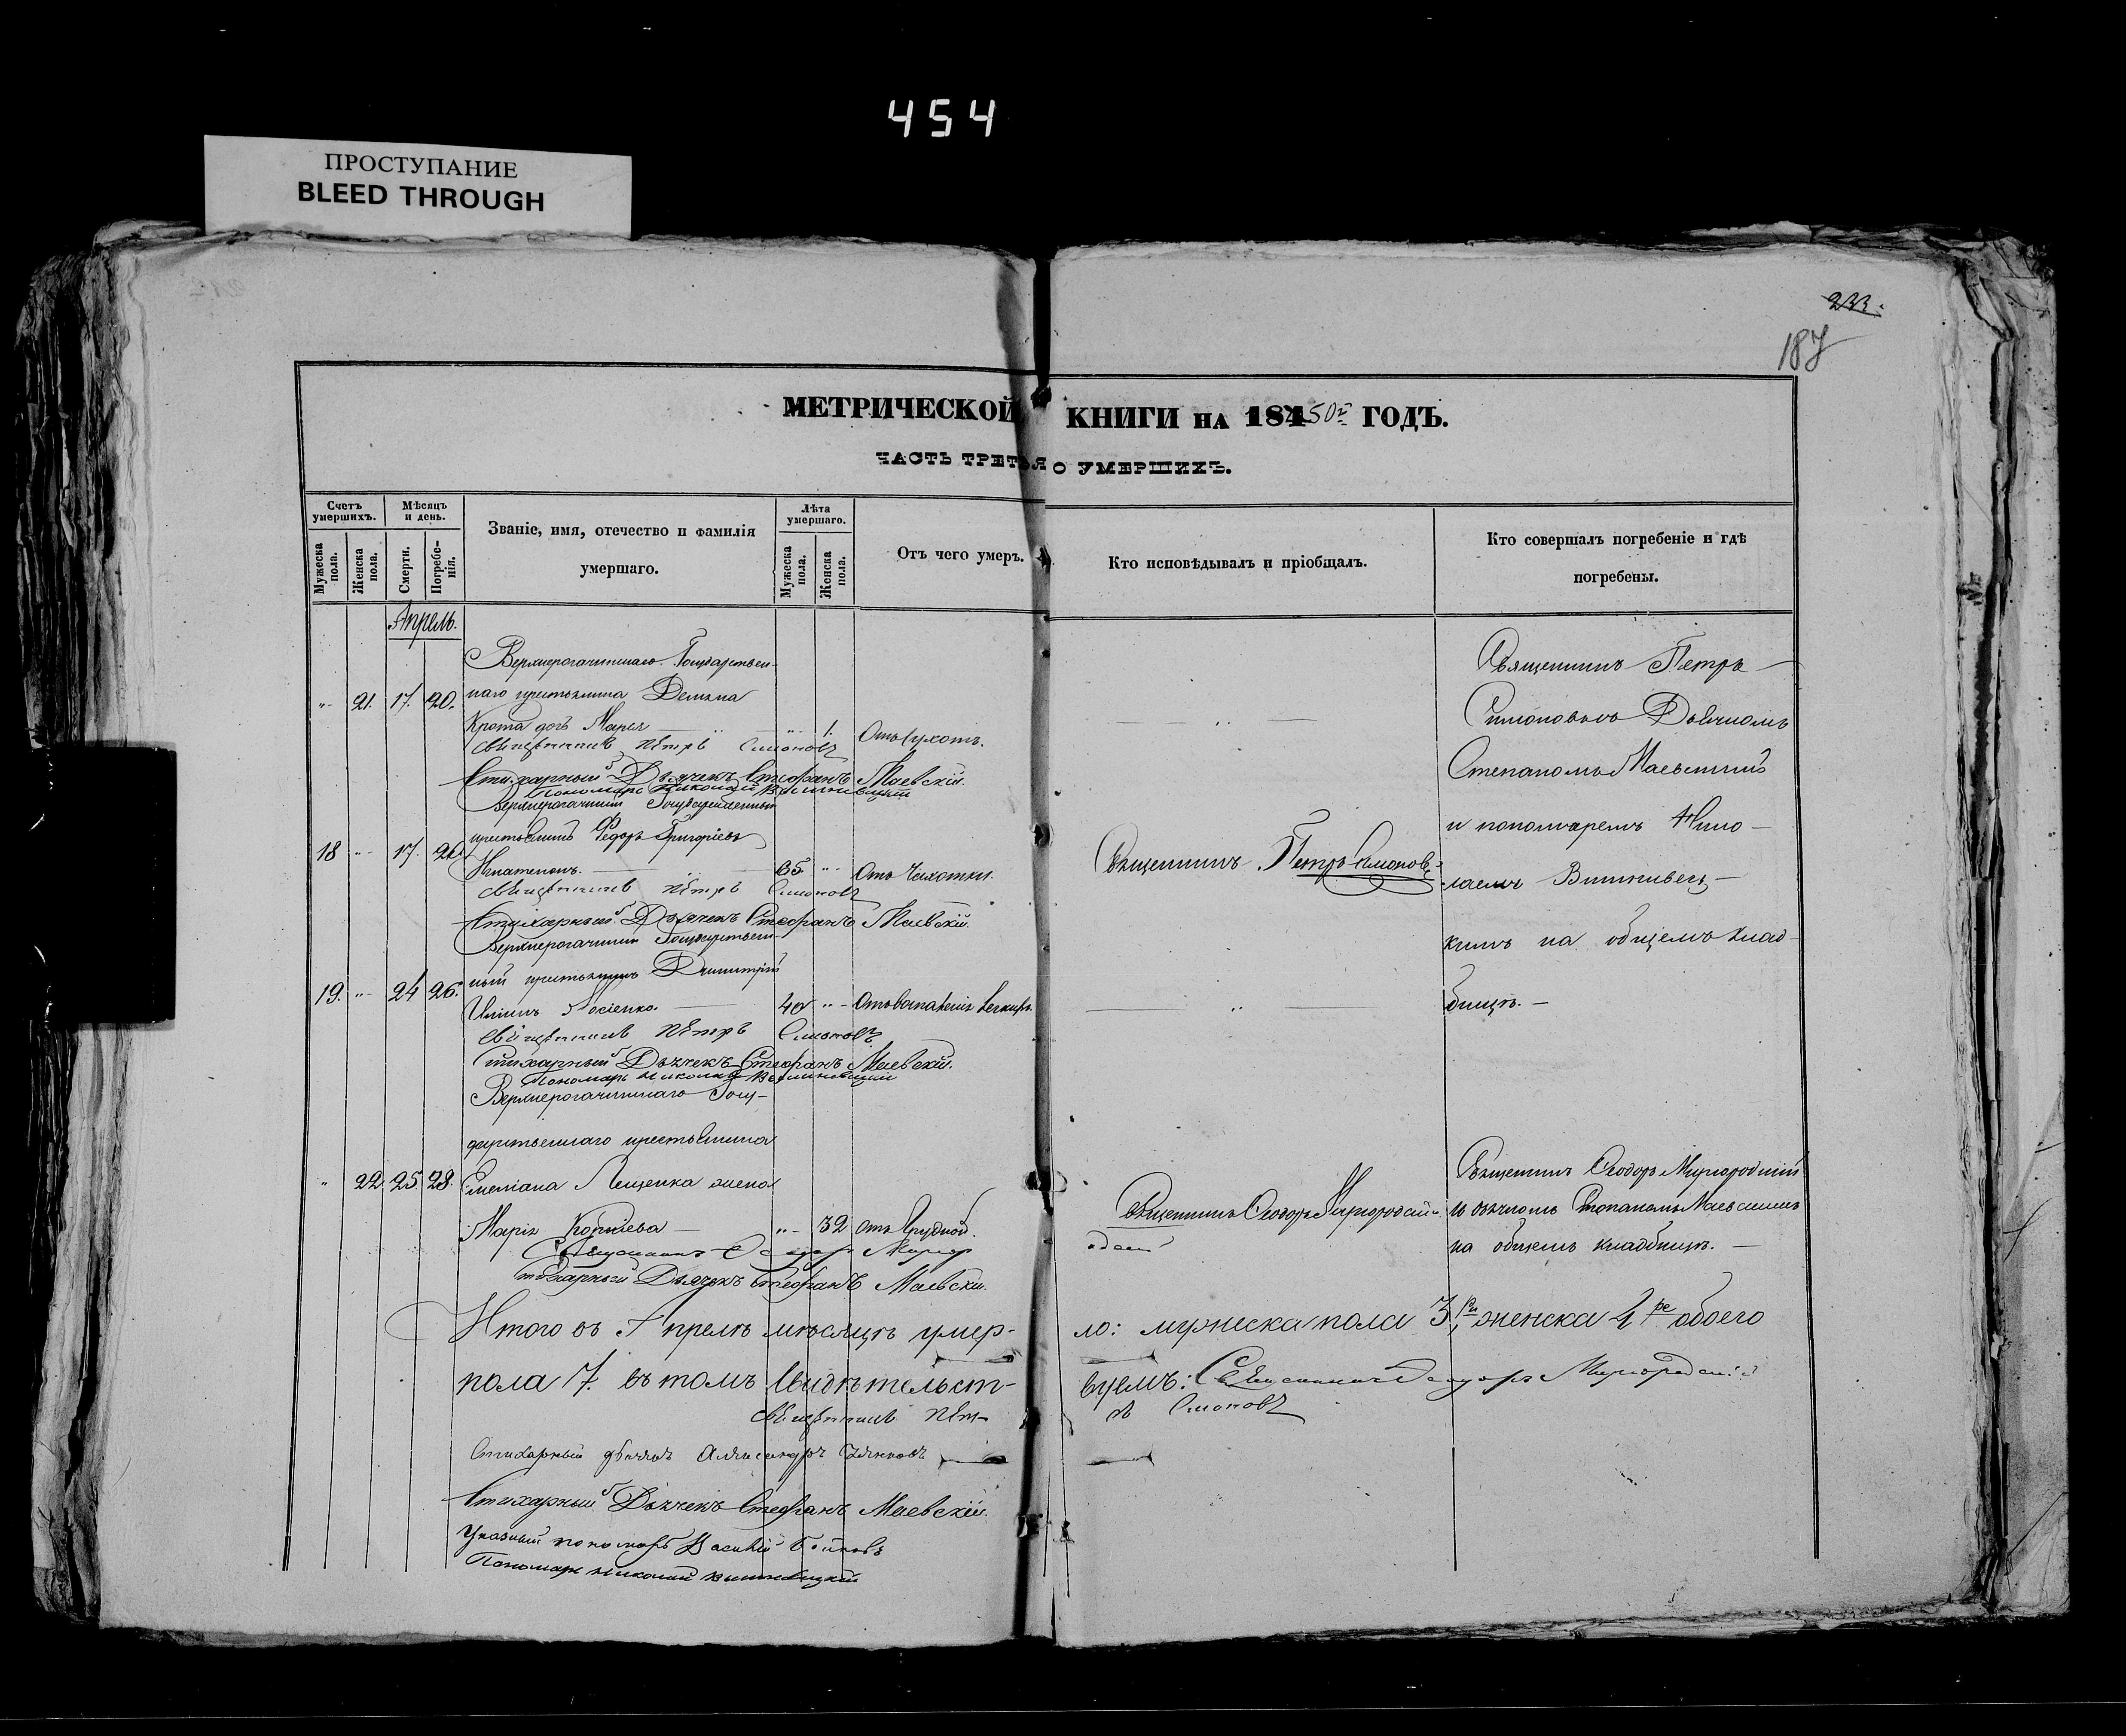 454
ПРОСТУПАНИЕ
BLEED THROUGH
233.
187
МЕТРИЧЕСКОЙ КНИГИ НА 184 50й ГОДЪ.
ЧАСТЬ ТРЕТЬЯ О УМЕРШИХЪ.
Счетъ умершихъ.
Мѣсяцъ и день.
Званіе, имя, отечество и фамилія умершаго.
Лѣта умершаго.
Отъ чего умеръ.
Кто исповѣдывалъ и пріобщалъ.
Кто совершалъ погребеніе и гдѣ погребены.
Мужеска пола.
Женска пола.
Смерти.
Погребенія.
Мужеска пола.
Женска пола.
Апрель.
Верхнерогачинскаго Государствен-
наго крестьянина Демяна
21. 17. 20.
Крота дочь Марія 1. Отъ сухотъ.
Священникъ Петръ Симоновъ
Стихарный Дьячекъ Стефанъ Маевскій.
Пономарь Николай Вишневецкій
Священникъ Петръ
Симоновъ съ Дьячкомъ
Степаномъ Маевскимъ
и пономаремъ Нико-
лаемъ Вишневец-
кимъ на общемъ клад-
бищѣ.
Верхнерогачинскій Государственный
крестьянинъ Федоръ Григоріевъ
18 17. 20.
Игнатенко. 65 Отъ Чахотки.
Священникъ Петръ Симоновъ
Священникъ Петръ Симоновъ
Стихарный Дьячекъ Стефанъ Маевскій.
Верхнерогачинскій Государствен-
ный крестьянинъ Димитрій
19. 24 26. 40 Отъ воспаленія легкихъ.
Священникъ Петръ Симоновъ
Стихарный Дьячекъ Стефанъ Маевскій.
Пономарь Николай Вишневецкій
Верхнерогачинскаго Госу-
дарственнаго крестьянина
22. 25. 28. Емеліана Лещенка жена
Марія Корніева 32 отъ Грудной.
Священникъ Феодоръ Миргородскій
Священникъ Феодоръ Миргородскій
и дьячкомъ Степаномъ Маевскимъ
на общемъ кладбищѣ.
Священникъ Феодоръ Миргор
одскій
Стихарный Дьячекъ Стефанъ Маевскій.
Итого въ Апрелѣ мѣсяцѣ умер-ло: мужеска пола 3, женска обоего
пола 7. въ томъ свидѣтельст-вуемъ: Священникъ Феодоръ Миргородскій
Священникъ Петръ Симоновъ
Стихарный дьячокъ Александръ
Стихарный Дьячекъ Стефанъ Маевскій.
Указный пономарь Василій
Пономарь Николай Вишневецкій